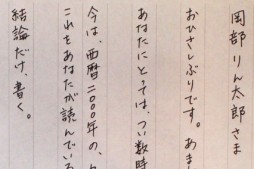 岡部りん太郎さま
おひさしぶりです。あまし
あなたにとっては、つい数時
今は、西暦二〇〇〇年の、
これをあなたが読んでいる
結論だけ、書く。